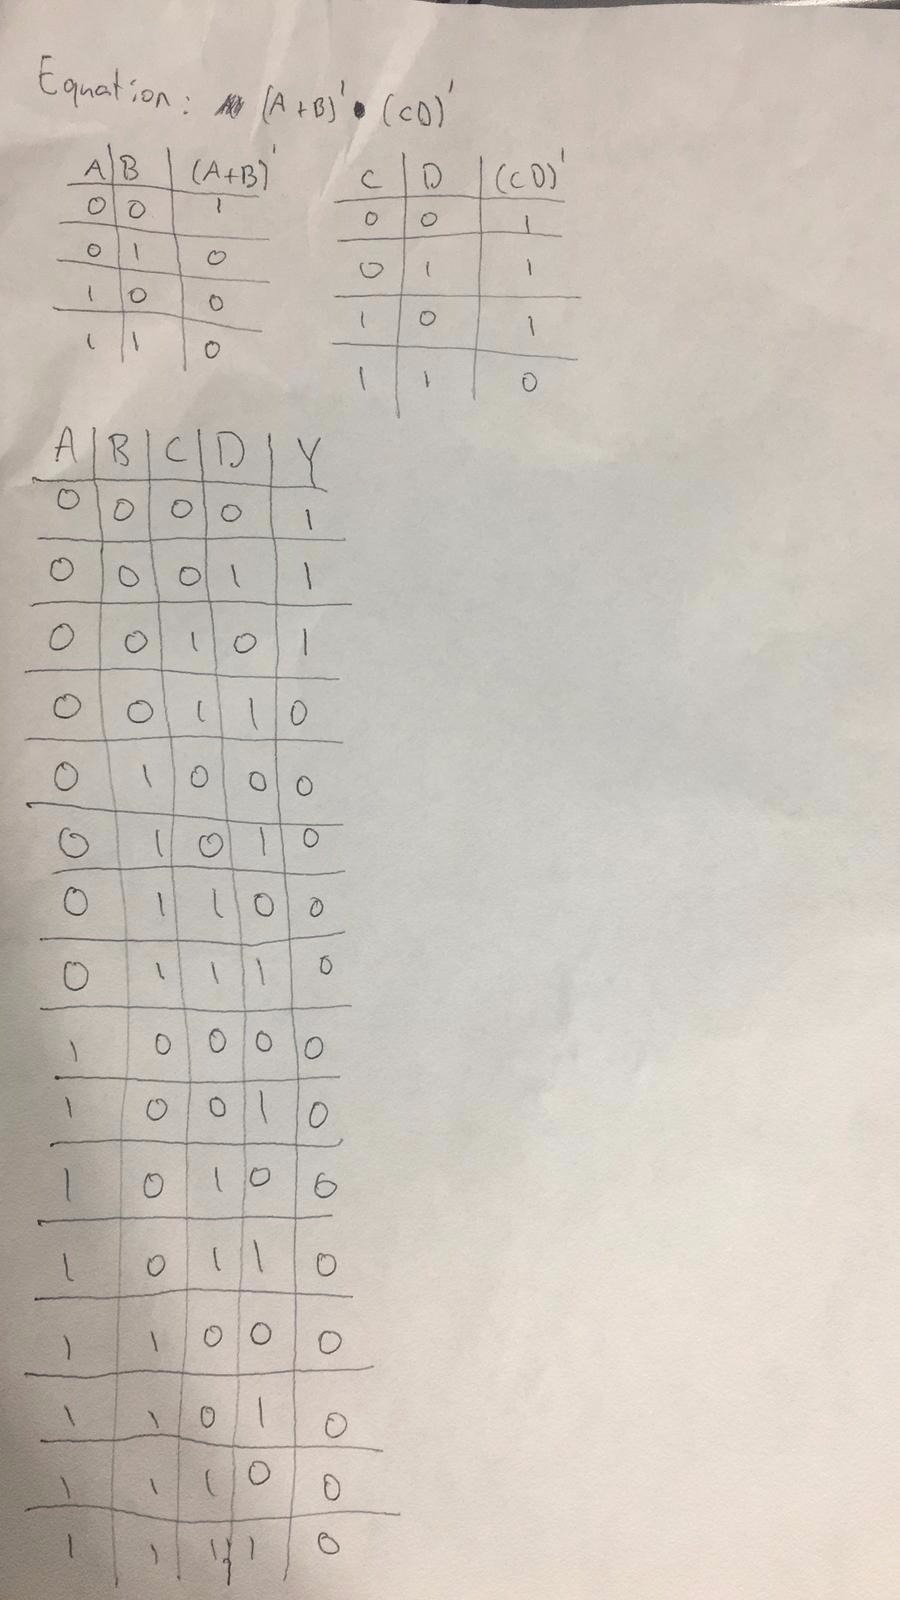 Equation: (A+B)' • (CD)'
A B (A+B)'
0 0 1
0 1 0
1 0 0
1 1 0
C D (CD)'
0 0 1
0 1 1
1 0 1
1 1 0
A B C D Y
0 0 0 0 1
0 0 0 1 1
0 0 1 0 1
0 0 1 1 0
0 1 0 0 0
0 1 0 1 0
0 1 1 0 0
0 1 1 1 0
1 0 0 0 0
1 0 0 1 0
1 0 1 0 0
1 0 1 1 0
1 1 0 0 0
1 1 0 1 0
1 1 1 0 0
1 1 1 1 0